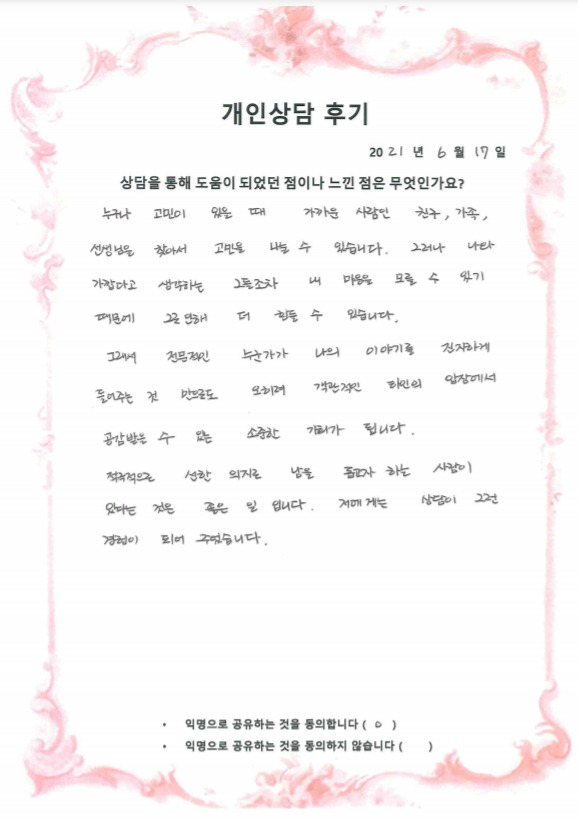 개인상담 후기
2021 년 6 월 17 일
상담을 통해 도움이 되었던 점이나 느낀 점은 무엇인가요?
누구나 고민이 있을 때 가까운 사람인 친구, 가족,
선생님을 찾아서 고민을 나눌 수 있습니다. 그러나 나타
가깝다고 생각하는 그들조차 내 마음을 모를 수 있기
때문에 그로 인해 더 힘들 수 있습니다.
그래서 전문적인 누군가가 나의 이야기를 진지하게
들어주는 것 만으로도 오히려 객관적인 타인의 입장에서
공감받을 수 있는 소중한 기회가 됩니다.
적극적으로 선한 의지로 남을 돕고자 하는 사람이
있다는 것은 좋은 일 입니다. 저에게는 상담이 그런
경험이 되어 주었습니다.
• 익명으로 공유하는 것을 동의합니다 ( o )
• 익명으로 공유하는 것을 동의하지 않습니다 ( )